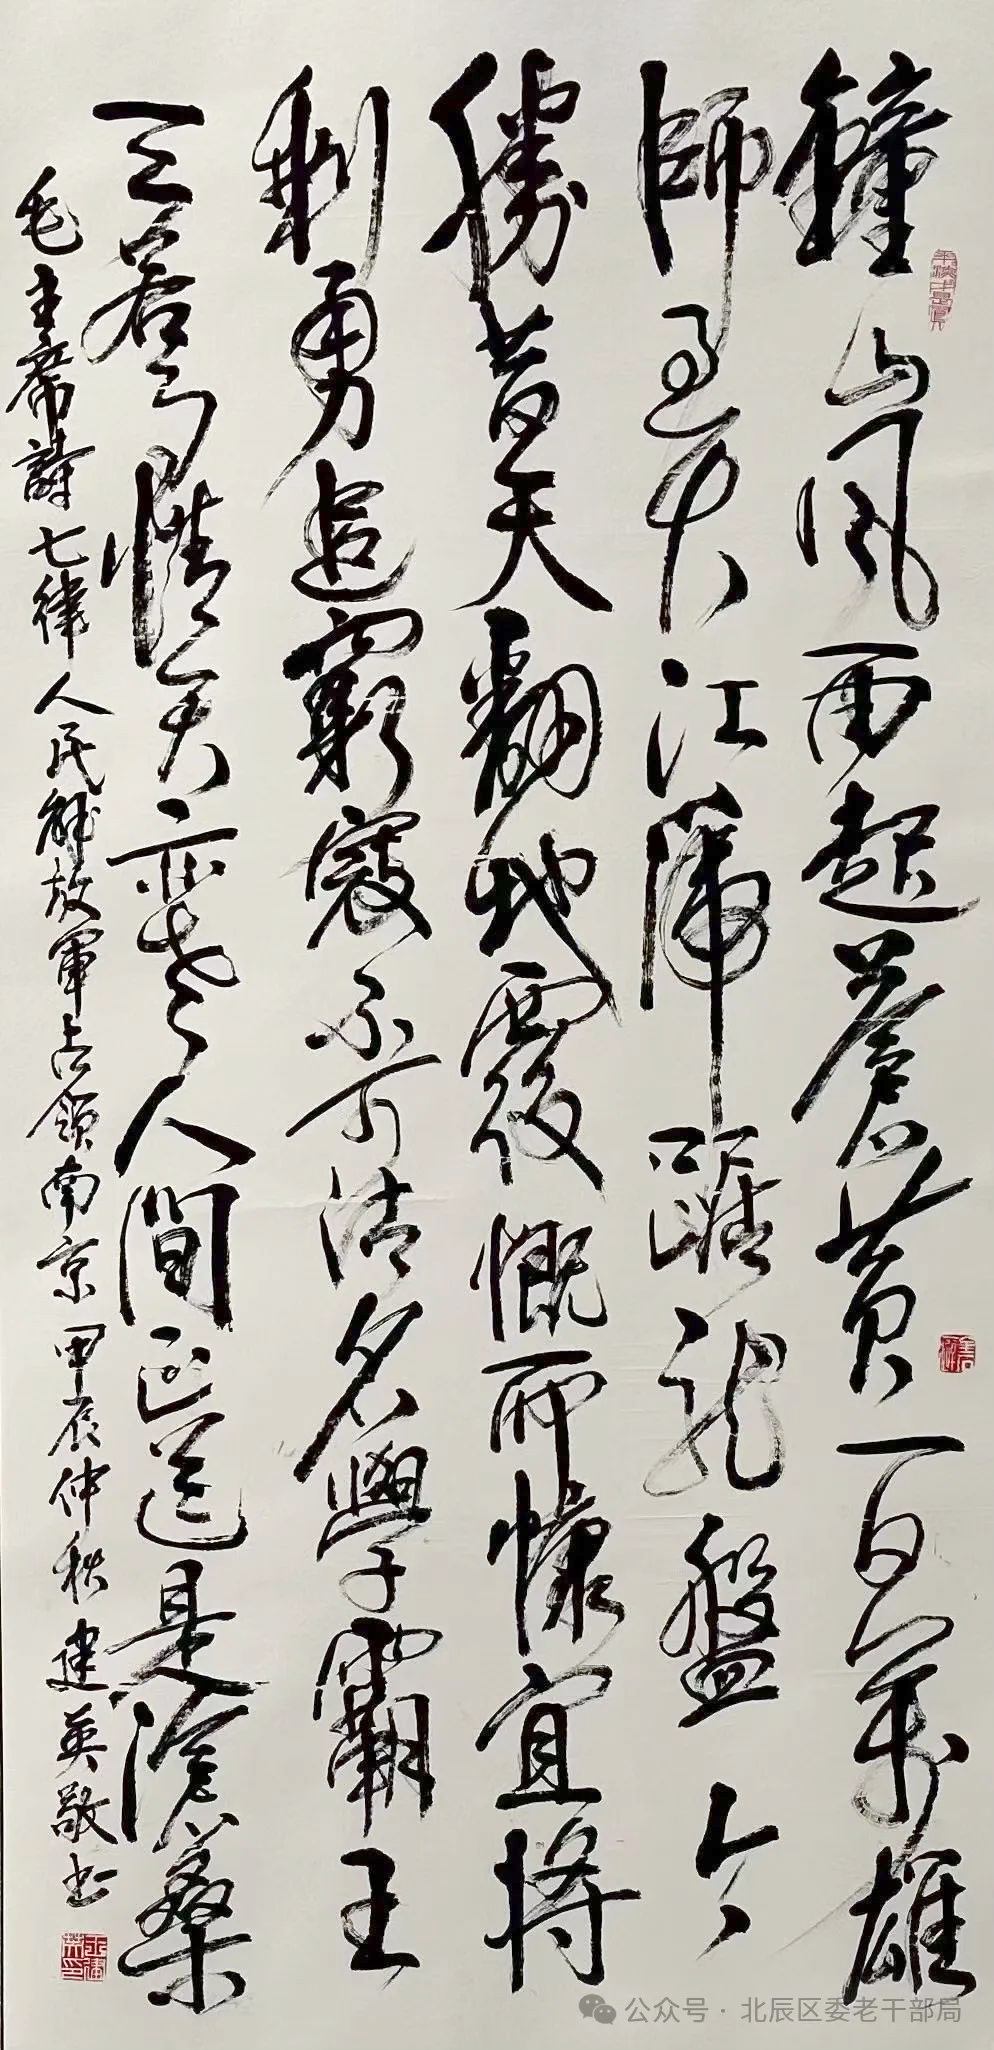 鐘山風雨起蒼黄百萬雄
師過大江虎踞龍盤今
勝昔天翻地覆慨而慷宜將
剩勇追窮寇不可沽名學霸王
天若有情天亦老人間正道是滄桑
毛主席詩七律人民解放軍占領南京 甲辰仲秋 建英敬书
公众号 · 北辰区委老干部局